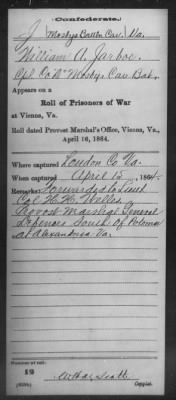 (Confederate.)
J Mosby's Battn Cav. Va.
William A. Jarboe
Cpl Co. Mosby's Cav. Bat.
Appears on a
Roll of Prisoners of War
at Vienna, Va.
Roll dated Provost Marshal's Office, Vienna, Va.,
April 16, 1864.
Where captured Loudon Co Va.
When captured April 15, 1864.
Remarks: Forwarded to Lieut
Col H. H. Wells
Provost Marshal General
Defences South of Potomac
at Alexandria Va.
Number of roll:
Copyist.